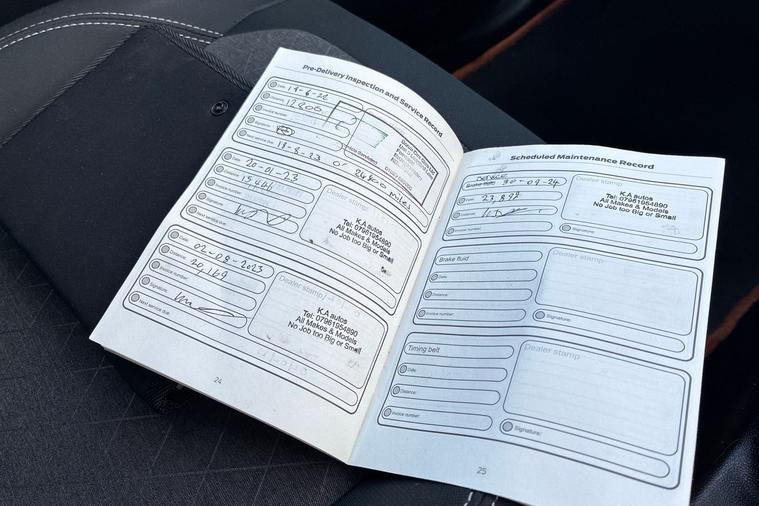 Pre-Delivery Inspection and Service Record
Date:
12800
Distance:
Invoice number:
Signature:
Next service due: 18-8-23 or 24800 miles
Date: 20-01-23
Distance:
Invoice number:
Signature:
Next service due:
Dealer stamp
K.A autos
Tel: 07961954890
All Makes & Models
No Job too Big or Small
Date: 02-08-2023
Distance: 20,169
Invoice number:
Signature:
Next service due:
Dealer stamp
K.A autos
Tel: 07961954890
All Makes & Models
No Job too Big or Small
24
Scheduled Maintenance Record
SERVICE
Date: 30-09-24
Distance: 23,898
Invoice number:
Dealer stamp
K.A autos
Tel: 07961954890
All Makes & Models
No Job too Big or Small
Signature:
Brake fluid
Date:
Distance:
Invoice number:
Dealer stamp
Signature:
Timing belt
Date:
Distance:
Invoice number:
Dealer stamp
Signature:
25